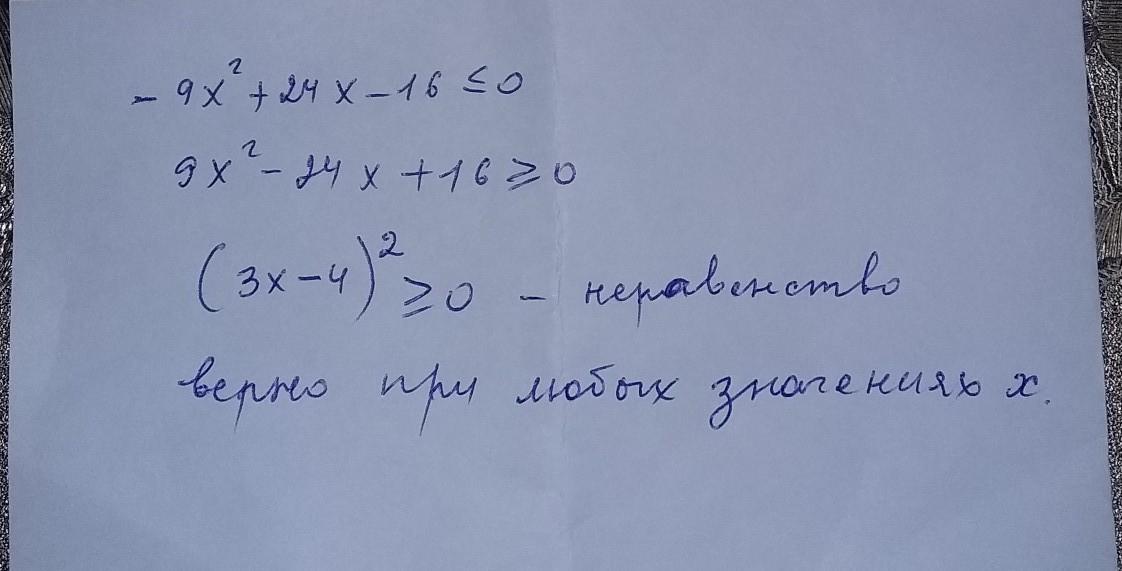 - 9x² + 24x - 16 ≤ 0
9x² - 24x + 16 ≥ 0
(3x - 4)² ≥ 0 - неравенство
верно при любых значениях x.